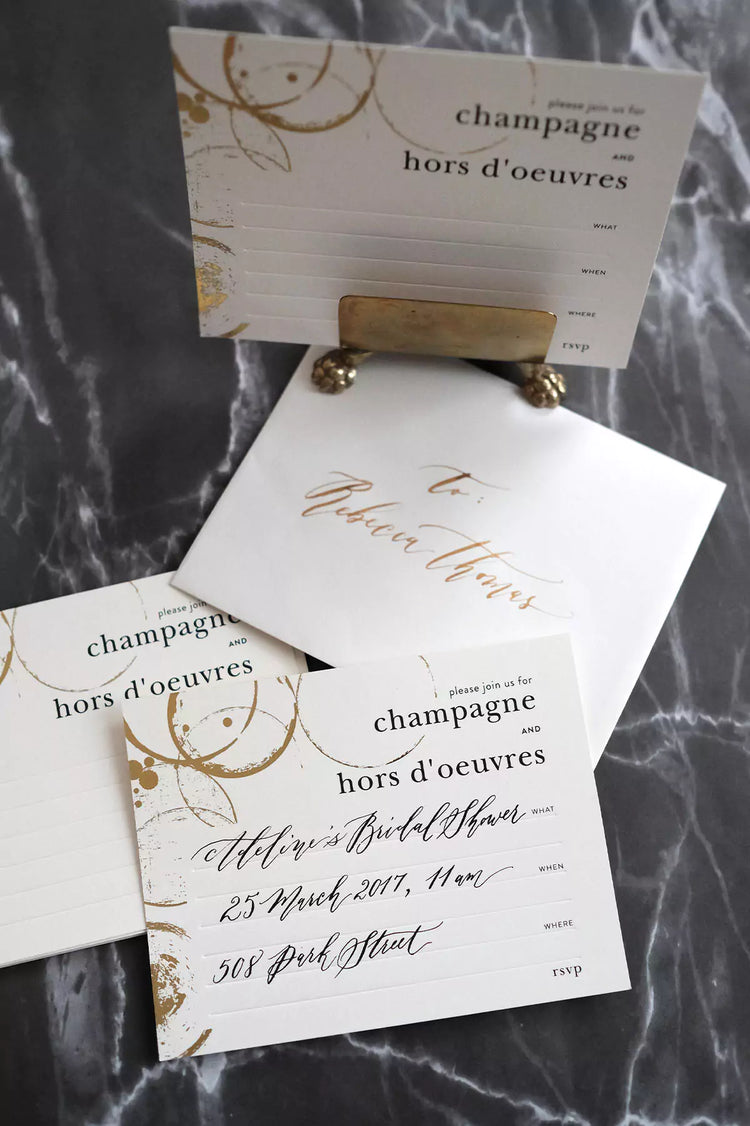 please join us for
champagne
AND
hors d'oeuvres
WHAT
WHEN
WHERE
rsvp
to:
Rebecca Thomas
please join
champagne
AND
hors d'oeuvres
please join us for
champagne
AND
hors d'oeuvres
Adeline's Bridal Shower WHAT
25 March 2017, 11am WHEN
508 Park Street WHERE
rsvp